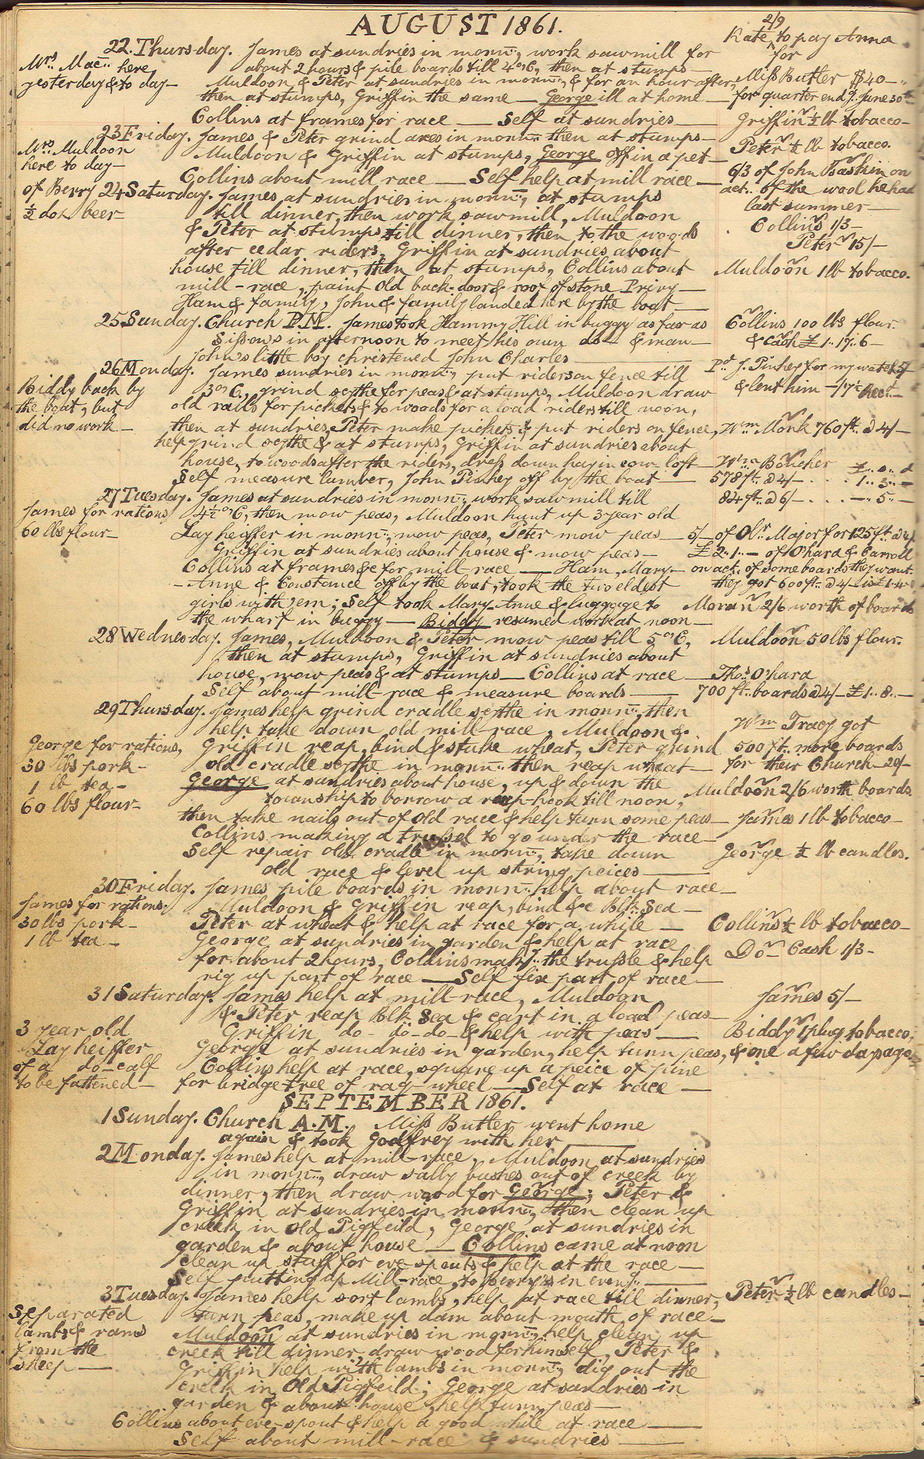 AUGUST 1861.
22. Thursday. James at sundries in morng, work sawmill for
about 2 hours & pile boards till 4 oC, then at stumps
Muldoon & Peter at sundries in morng, & for an hour after,
then at stumps, Griffin the same — George ill at home —
Collins at frames for race — Self at sundries —
Mrs Mac.. here
yesterday & to day —
2/9
Kate to pay Anna
for
Miss Butler $40 —
for quarter endg June 30th
Griffin ½ lb tobacco —
23 Friday. James & Peter grind axes in morng then at stumps —
Muldoon & Griffin at stumps, George off in a pet —
Collins about mill race — Self help at mill race —
Mrs Muldoon
here to day —
Peter ½ lb tobacco.
6/3 of John Baskin on
act. of the wool he had
last summer —
24 Saturday. James, at sundries in morng, at stumps
till dinner, then work sawmill, Muldoon
& Peter at stumps till dinner, then to the woods
after cedar riders, Griffin at sundries about
house till dinner, then at stumps, Collins about
mill-race, paint old back-door & roof of stone Privy —
Ham & family, John & family landed here by the boat —
of Berry
½ doz beer
Collins 1/3 —
Peter 15/—
Muldoon 1 lb tobacco.
25 Sunday. Church P.M. James took Hammy Hill in buggy as far as
Sisson's in afternoon to meet his own do & man —
John's little boy christened John Charles —
Collins 100 lbs flour.
& cash £1.17.6 —
26 Monday. James sundries in morng, put riders on fence till
3 oC, grind scythe for peas & at stumps, Muldoon draw
old rails for pickets & to woods for a load riders till noon,
then at sundries, Peter make pickets & put riders on fence,
help grind scythe & at stumps, Griffin at sundries about
house, to woods after the riders, dress down hay in cow loft —
Self measure lumber, John Pinhey off by the boat —
Biddy back by
the boat, but
did no work —
Pd J. Pinhey for my watch
& lent him
Wm Monk 760 ft. @ 4/—
Wm Boucher
578 ft. @ 4/— . . . 1. 3. —
84 ft. @ 6/— . . . — 5. —
27 Tuesday. James at sundries in morng, work saw mill till
4½ oC, then mow peas, Muldoon hunt up 3 year old
Zay heiffer in morng, mow peas, Peter mow peas
Griffin at sundries about house & mow peas —
Collins at frames &c for mill race — Ham, Mary
Anne & Constance off by the boat; took the two eldest
girls with 'em; Self took Mary Anne & luggage to
the wharf in buggy — Biddy resumed work at noon —
James for rations
60 lbs flour —
5/— of Obr. Major for 125 ft. @ 4/
£2.1.— of O'hard & Carroll
on act. of some boards they want
they got 600 ft. @ 4/— is £1.4.—
Moran 2/6 worth of boards
28 Wednesday. James, Muldoon & Peter mow peas till 5 oC,
then at stumps, Griffin at sundries about
house, mow peas & at stumps — Collins at race —
Self about mill race & measure boards —
Muldoon 50 lbs flour.
Thos O'hara
700 ft. boards @ 4/— £1.8.—
29 Thursday. James help grind cradle scythe in morng, then
help take down old mill-race, Muldoon &
Griffin reap, bind & stuke wheat, Peter grind
old cradle scythe in morng then reap wheat —
George at sundries about house, up & down the
township to borrow a reap-hook till noon,
then take nails out of old race & help turn some peas
Collins making a trussel to go under the race —
Self repair old cradle in morng, take down
old race & level up string peices —
George for rations,
30 lbs pork —
1 lb tea —
60 lbs flour —
Wm Tracy got
500 ft. more boards
for their Church — 20/—
Muldoon 2/6 worth boards
James 1 lb tobacco —
George ½ lb candles.
30 Friday. James pile boards in morng help about race —
Muldoon & Griffin reap, bind &c Blk. Sea —
Peter at wheat & help at race for a while —
George at sundries in garden & help at race
for about 2 hours, Collins makg. the trussle & help
rig up part of race — Self fix part of race —
James for rations.
30 lbs pork —
1 lb tea —
Collins ½ lb tobacco
Do — Cash 1/3 —
31 Saturday. James help at mill-race, Muldoon
& Peter reap Blk Sea & cart in a load peas
Griffin do — do — do — & help with peas —
George at sundries in garden, help turn peas,
Collins help at race, square up a peice of pine
for bridge-tree of rag wheel — Self at race —
3 year old
Zay heiffer
of a do — calf
to be fattened —
James 5/—
Biddy 1 plug tobacco,
& one a few days ago
SEPTEMBER 1861.
1 Sunday. Church A.M. Miss Butler went home
again & took Godfrey with her
2 Monday. James help at mill-race, Muldoon at sundries
in morng, draw sally bushes out of creek by
dinner, then draw wood for George; Peter &
Griffin at sundries in morng, then clean up
creek in Old Pigfeild, George at sundries in
garden & about house — Collins came at noon
clean up stuff for eve spouts & help at the race —
Self putting up Mill-race, to Berry's in eveng. —
3 Tuesday. James help sort lambs, help at race till dinner,
turn peas, make up dam about mouth of race —
Muldoon at sundries in morng, help clean up
creek till dinner, draw wood for himself, Peter &
Griffin help with lambs in morng, dig out the
creek in Old Pigfeild; George at sundries in
garden & about house, help turn peas —
Collins about eve-spout & help a good while at race
Self about mill-race & sundries —
Separated
lambs & rams
from the
sheep —
Peter ½ lb candles —